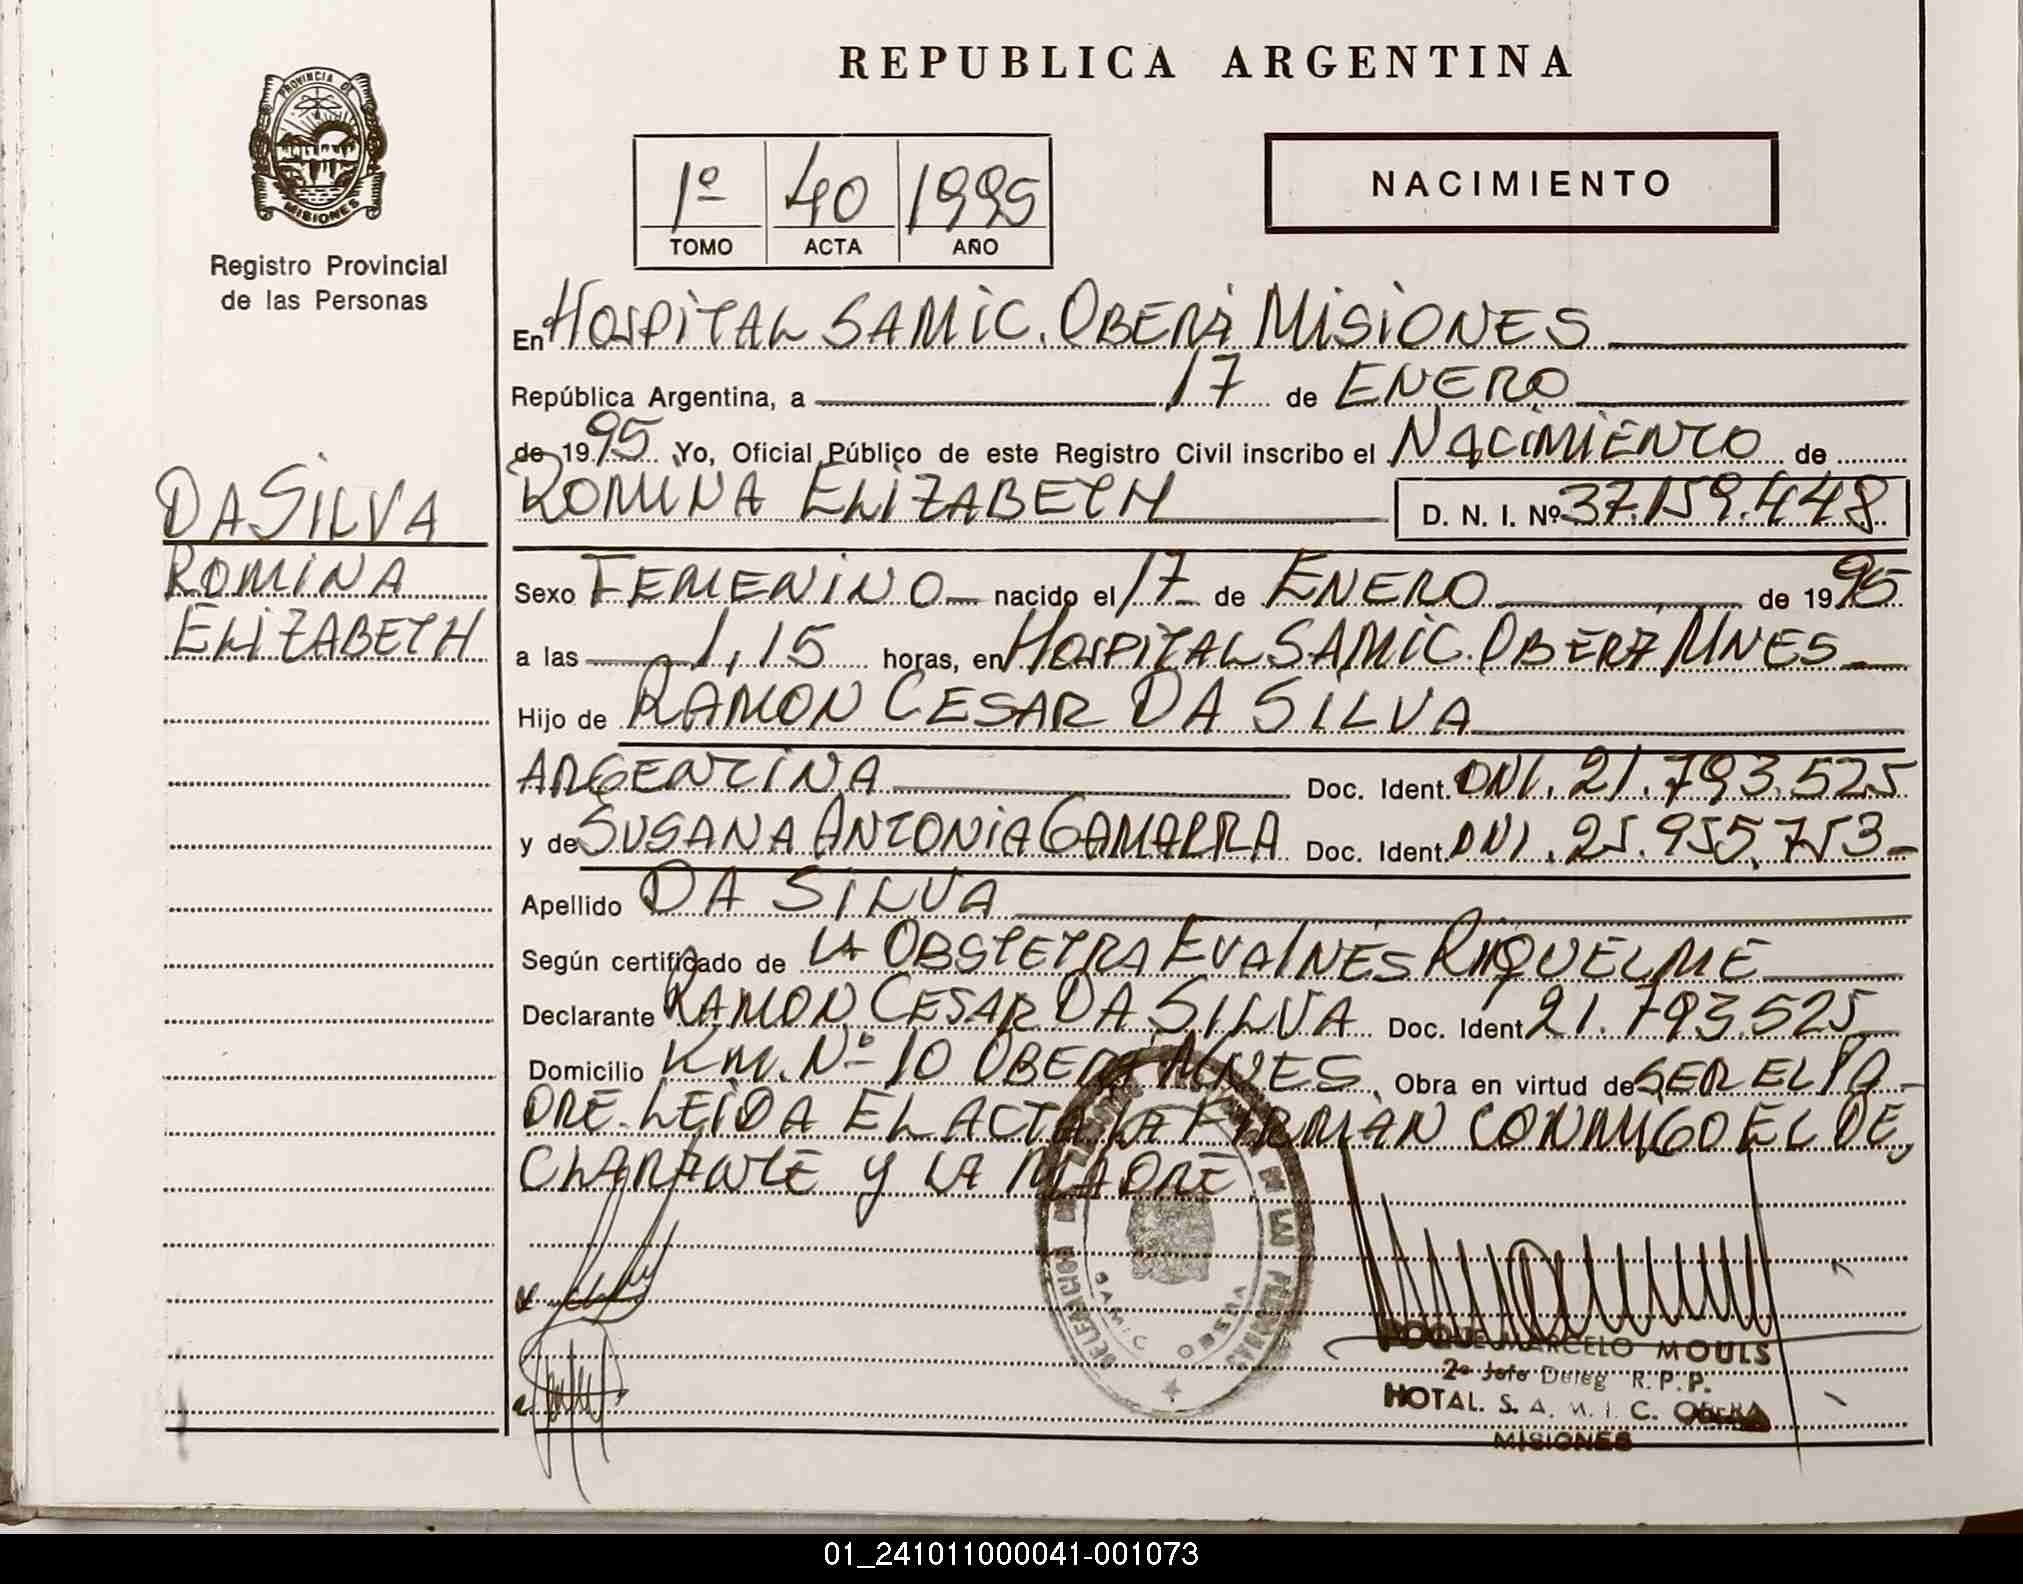 REPUBLICA ARGENTINA
PROVINCIA DE
MISIONES
Registro Provincial
de las Personas
1º 40 1995
TOMO ACTA AÑO
NACIMIENTO
En HOSPITAL SAMIC. OBERÁ MISIONES
República Argentina, a 17 de ENERO
de 1995 Yo, Oficial Público de este Registro Civil inscribo el NACIMIENTO de
ROMINA ELIZABETH D. N. I. Nº 37.159.448
DA SILVA
ROMINA
ELIZABETH
Sexo FEMENINO nacido el 17 de ENERO de 1995
a las 1,15 horas, en HOSPITAL SAMIC. OBERÁ MNES
Hijo de RAMON CESAR DA SILVA
ARGENTINA Doc. Ident. DNI. 21.793.525
y de SUSANA ANTONIA GAMARRA Doc. Ident. DNI. 25.955.753
Apellido DA SILVA
Según certificado de LA OBSTETRA EVA INES RIQUELME
Declarante RAMON CESAR DA SILVA Doc. Ident 21.793.525
Domicilio KM. Nº 10 OBERÁ MNES Obra en virtud de SER EL PA-
DRE. LEIDA EL ACTA LA FIRMAN CONMIGO EL DE
CLARANTE Y LA MADRE
DELEGACION SAMIC OBERA
ROQUE MARCELO MOULS
2º Jefe Deleg R. P. P.
HOTAL. S. A. M. I. C. OBERA
MISIONES
01_241011000041-001073